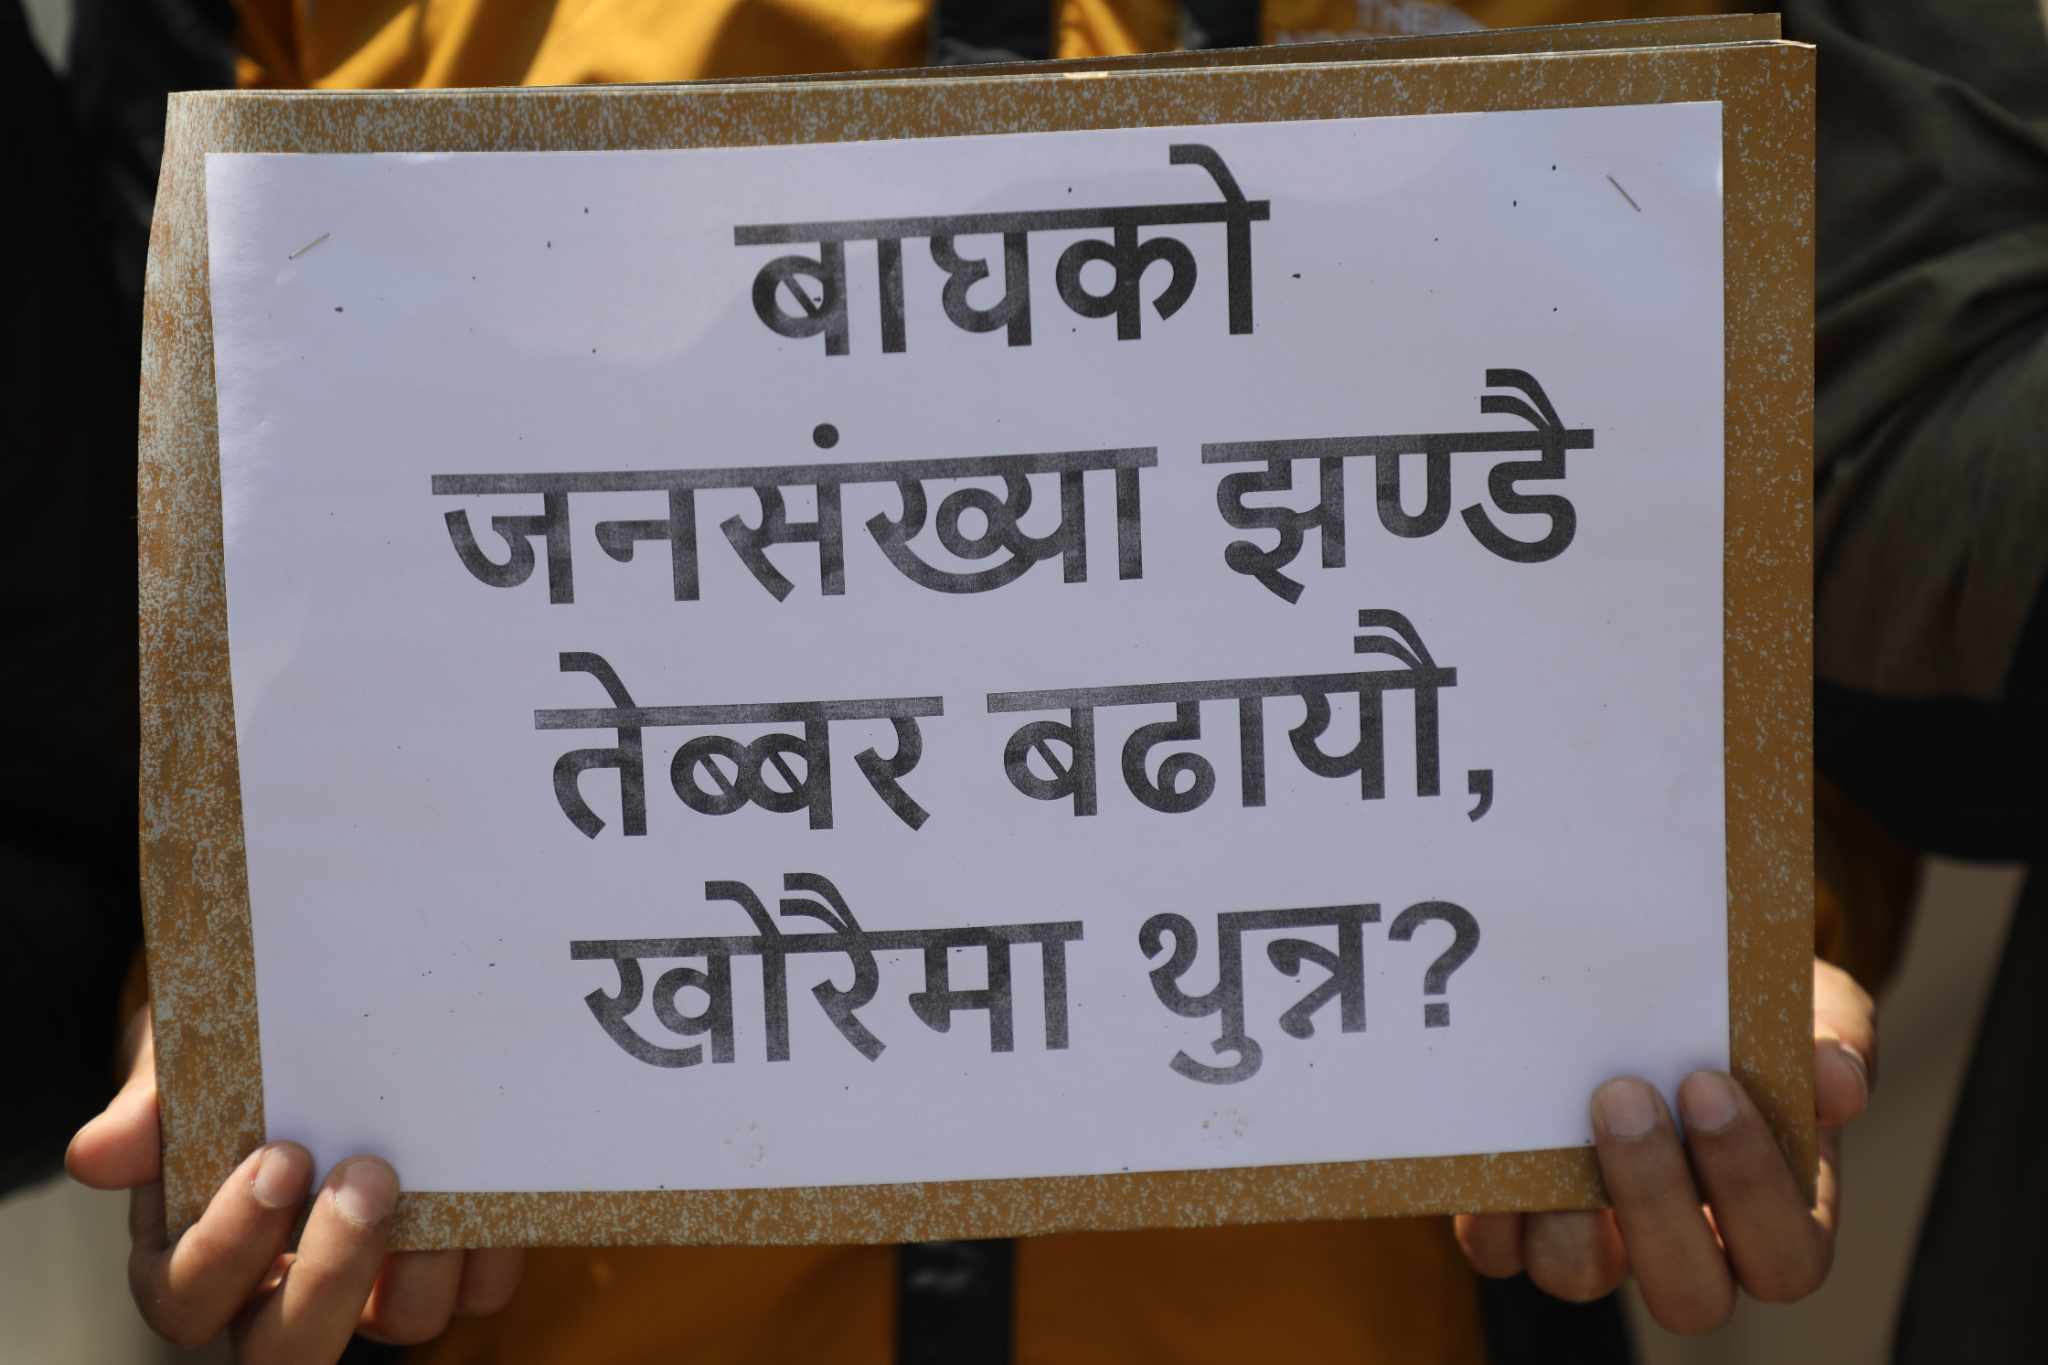 THE
बाघको
जनसंख्या झण्डै
तेब्बर बढायौ,
खोरैमा थुन्न?